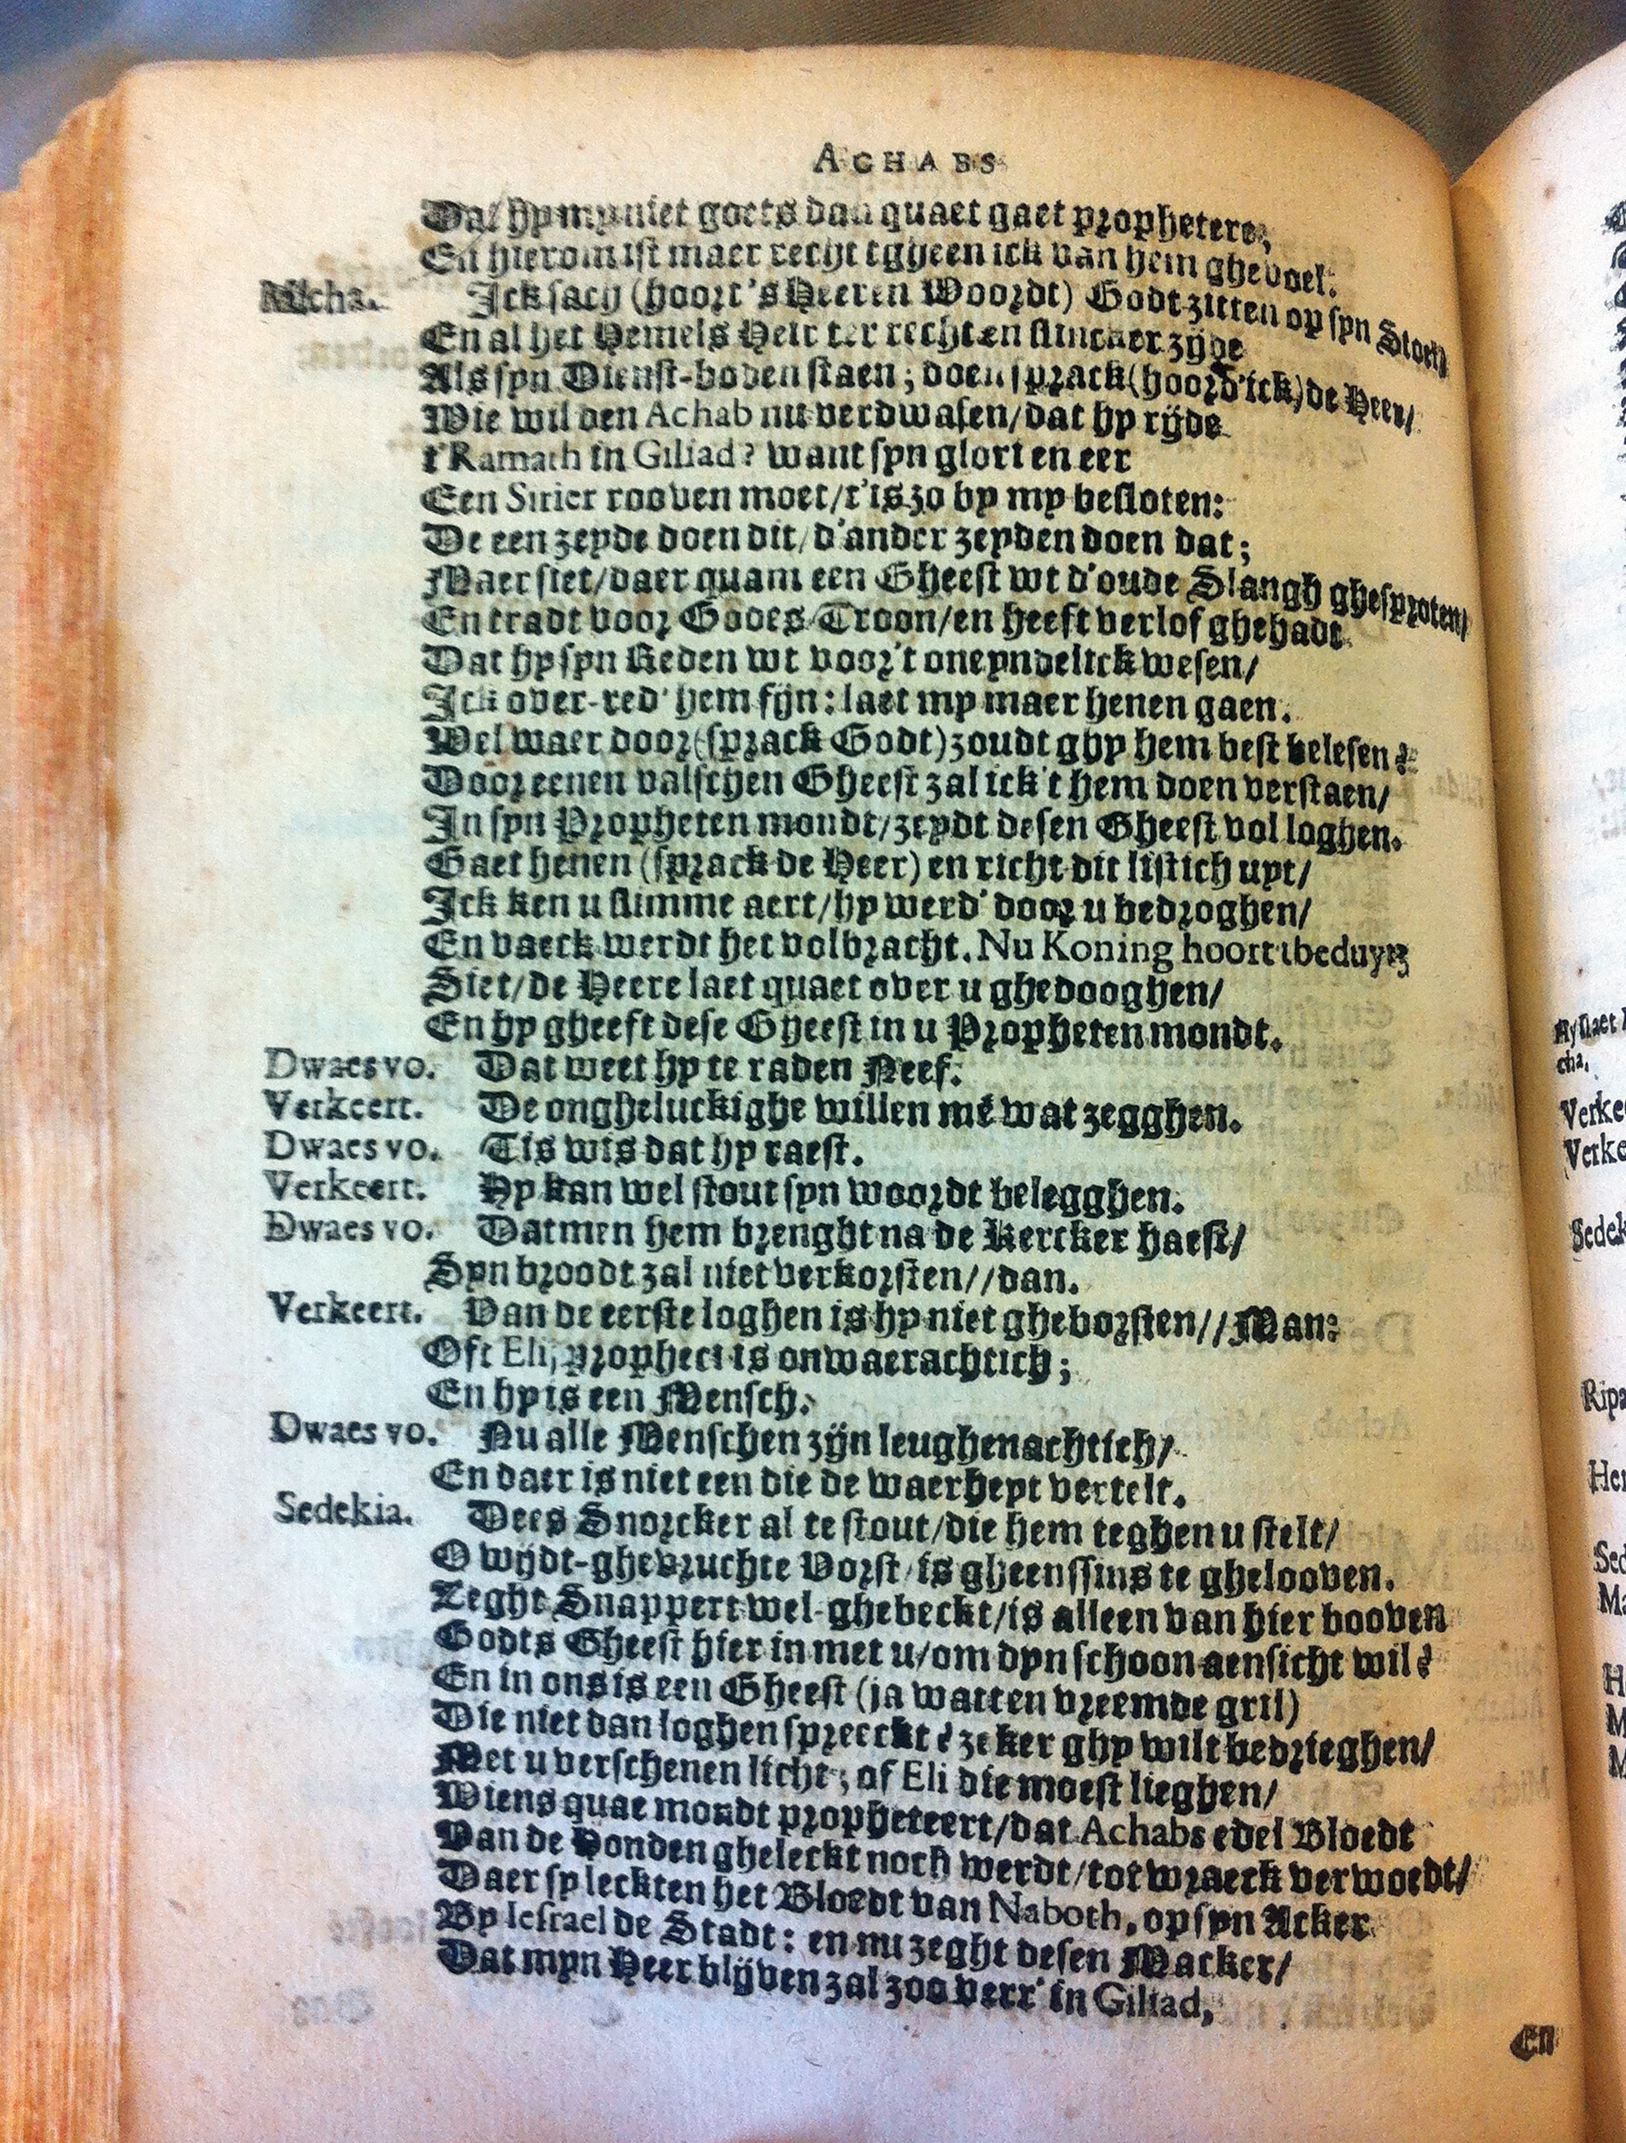 ACHABS
Dat hy my niet goets dan quaet gaet prophetere,
En hierom ist maer recht tgheen ick van hem ghevoel.
Micha. Ick sach (hoort 's Heeren Woordt) Godt zitten op syn Stoel,
En al het Hemels Heir ter rechten slincker zijde
Als syn Dienst-boden staen; doen sprack (hoord' ick) de Heer/
Wie wil den Achab nu verdwasen/dat hy rijde
t'Ramath in Giliad? want syn glori en eer
Een Sirier rooven moet/t'is zo by my besloten:
De een zeyde doen dit/d'ander zeyden doen dat;
Maer siet/daer quam een Gheest wt d'oude Slangh ghesproten/
En tradt voor Godes Troon/en heeft verlof ghehadt
Dat hy syn Reden wt voor't oneyndelick wesen/
Ick over-red' hem fijn: laet my maer henen gaen.
Wel waer door (sprack Godt) zoudt ghy hem best belesen?
Door eenen valschen Gheest zal ick't hem doen verstaen/
In syn Propheten mondt/zeydt desen Gheest vol loghen.
Gaet henen (sprack de Heer) en richt dit listich uyt/
Ick ken u slimme aert/hy werd' door u bedroghen/
En vaeck werdt het volbracht. Nu Koning hoort tbeduyt;
Siet/de Heere laet quaet over u ghedooghen/
En hy gheeft dese Gheest in u Propheten mondt.
Dwaes vo. Dat weet hy te raden Neef.
Verkeert. De ongheluckighe willen mé wat zegghen.
Dwaes vo. Tis wis dat hy raest.
Verkeert. Hy kan wel stout syn woordt belegghen.
Dwaes vo. Datmen hem brenght na de Kercker haest/
Syn broodt zal niet verkorsten//dan.
Verkeert. Van de eerste loghen is hy niet gheborsten//Man:
Oft Eli, prophect is onwaerachtich;
En hy is een Mensch.
Dwaes vo. Nu alle Menschen zijn leughenachtich/
En daer is niet een die de waerheyt vertelt.
Sedekia. Dees Snorcker al te stout/die hem teghen u stelt/
O wijdt-ghevruchte Vorst/is gheenssins te ghelooven.
Zeght Snappert wel-ghebeckt/is alleen van hier booven
Godts Gheest hier in met u/om dyn schoon aensicht wil?
En in ons is een Gheest (ja wat ten vreemde gril)
Die niet dan loghen spreeckt? zeker ghy wilt bedrieghen/
Met u verschenen licht; of Eli die moest lieghen/
Wiens quae mondt propheteert/dat Achabs edel Bloedt
Van de Honden gheleckt noch werdt/tot wraeck verwoedt/
Daer sy leckten het Bloedt van Naboth, op syn Acker
By Iesrael de Stadt: en nu zeght desen Macker/
Dat myn Heer blijven zal zoo verr' in Giliad,
En
Verkee
Verke
Sedek
Ripa
Her
Sed
Ma
H
M
M